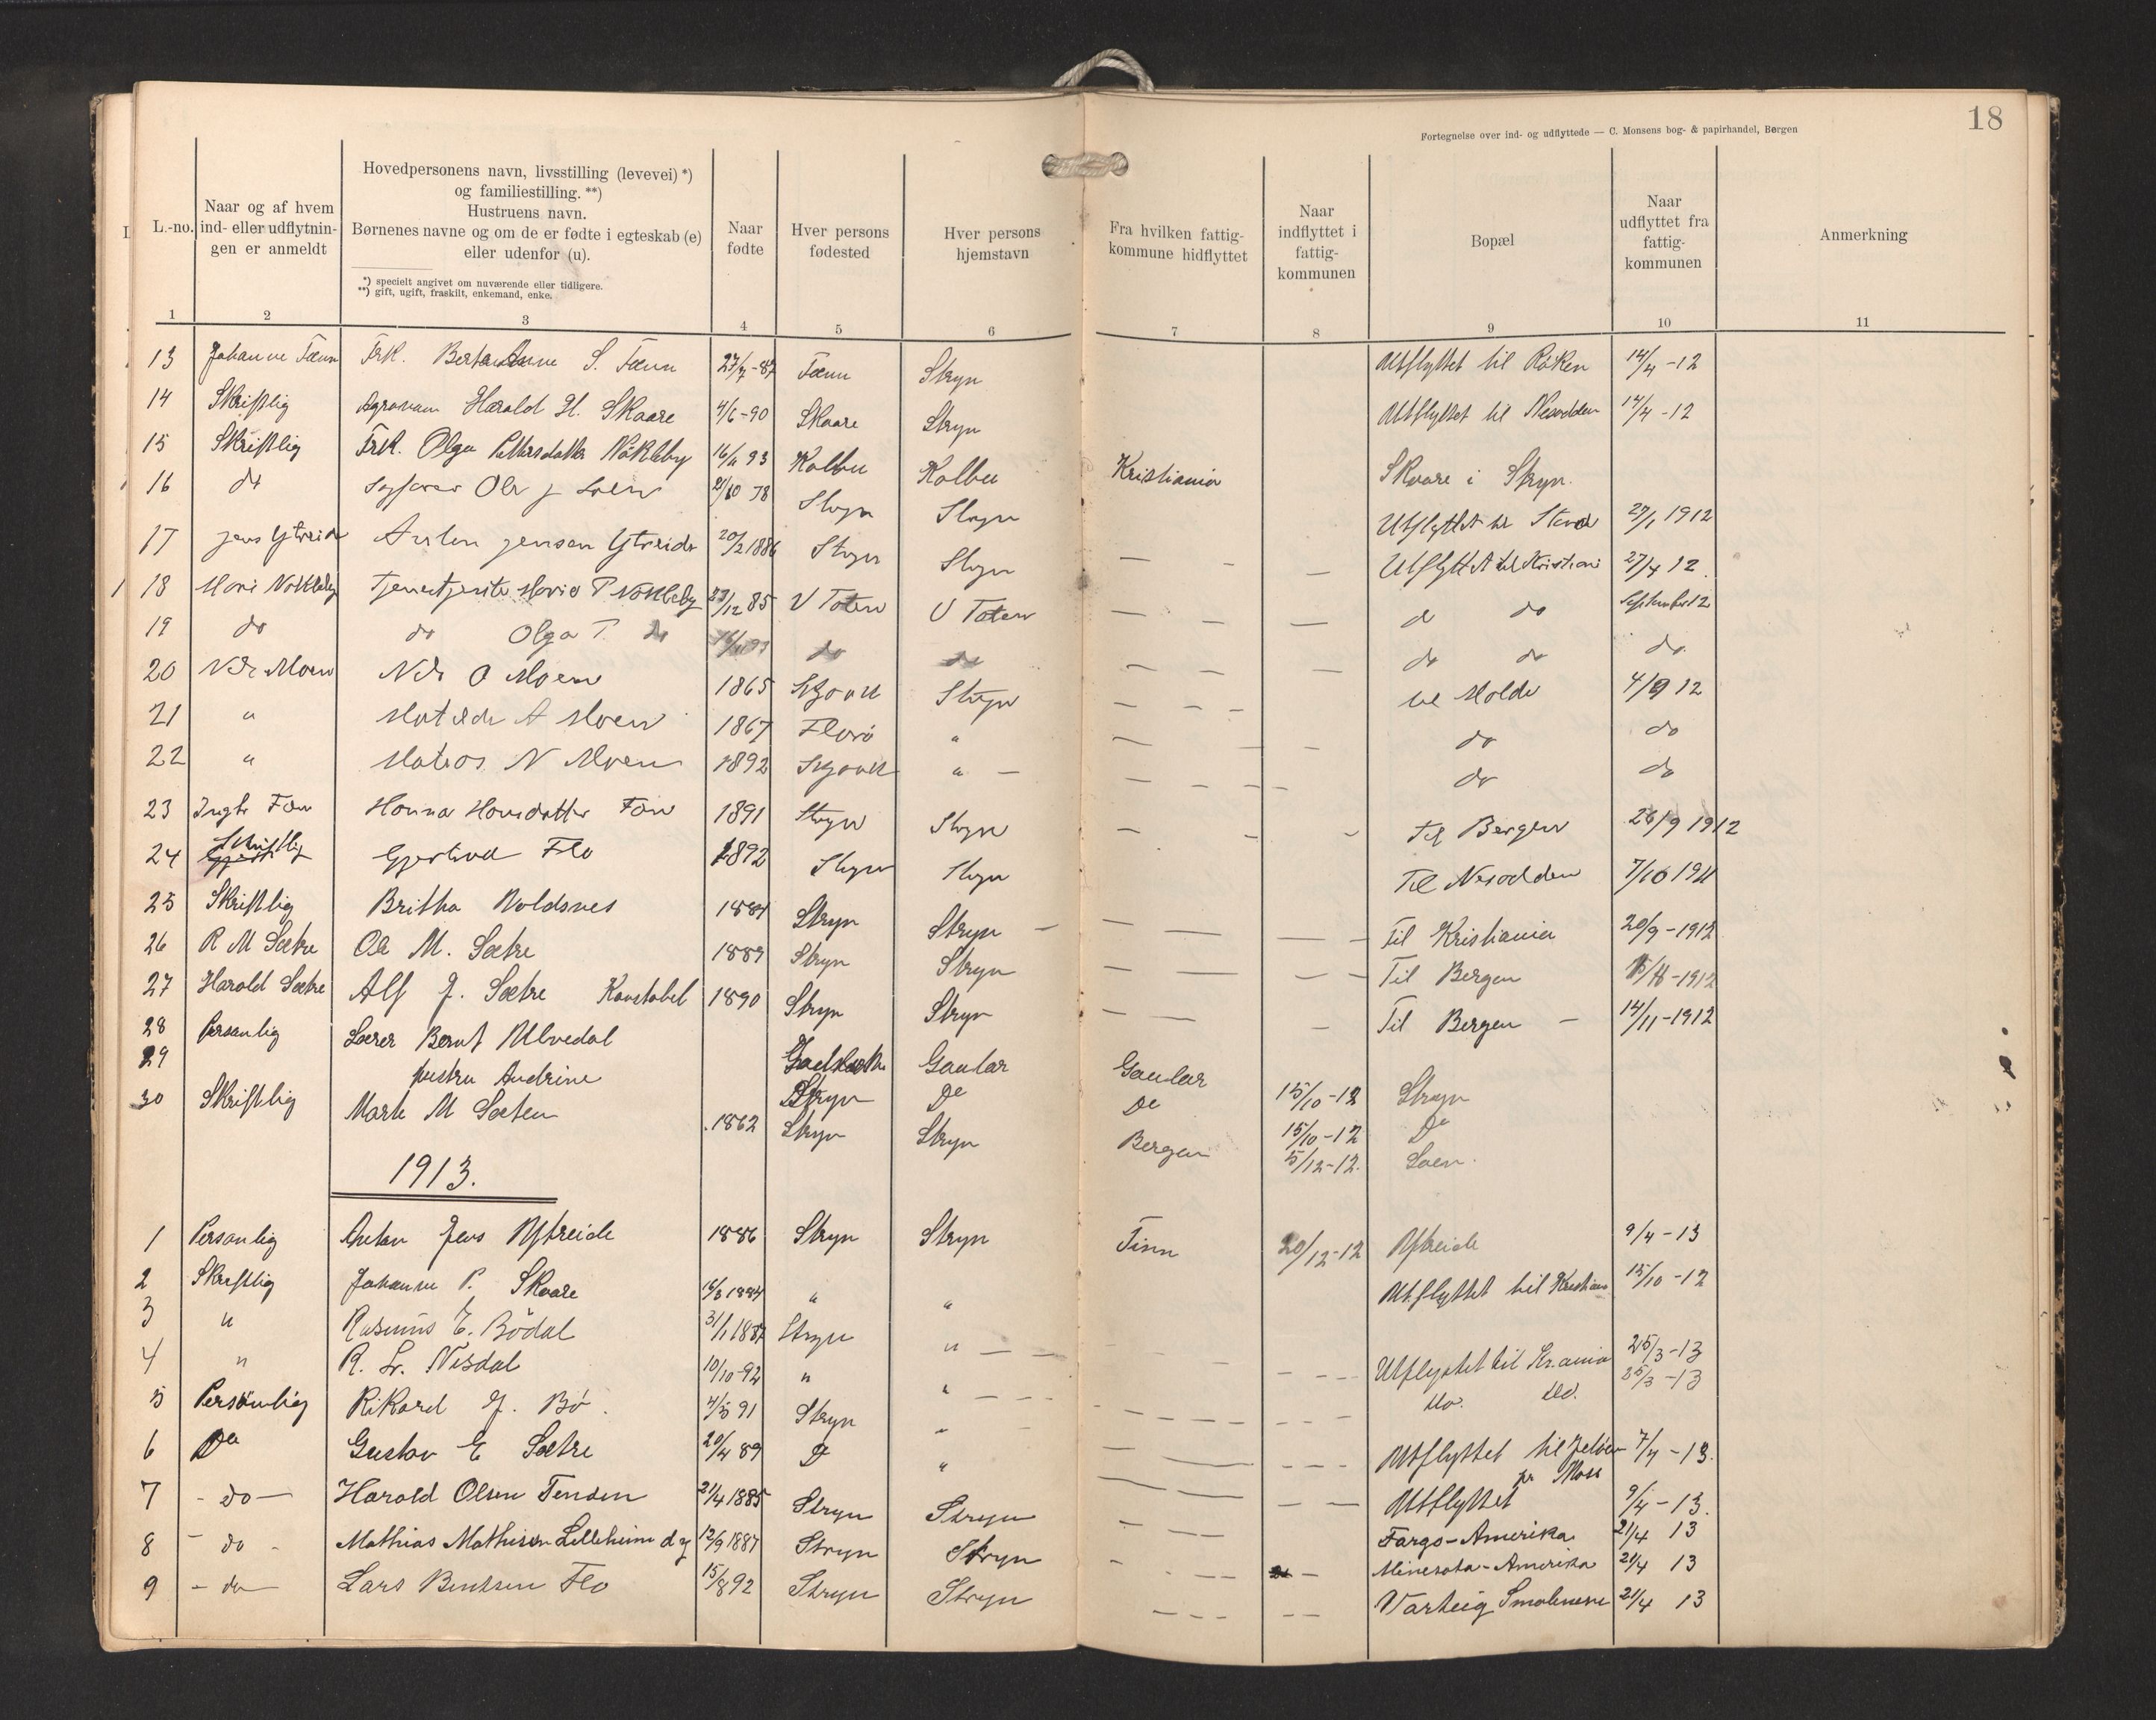 18
Fortegnelse over ind- og udflyttede — C. Monsens bog- & papirhandel, Bergen
L.-no.
Naar og af hvem ind- eller udflytningen er anmeldt
Hovedpersonens navn, livsstilling (levevei) *) og familiestilling. **)
Hustruens navn.
Børnenes navne og om de er fødte i egteskab (e) eller udenfor (u).
*) specielt angivet om nuværende eller tidligere.
**) gift, ugift, fraskilt, enkemand, enke.
Naar fødte
Hver persons fødested
Hver persons hjemstavn
Fra hvilken fattigkommune hidflyttet
Naar indflyttet i fattigkommunen
Bopæl
Naar udflyttet fra fattigkommunen
Anmerkning
1 2 3 4 5 6 7 8 9 10 11
13 Johanne Tænn Frk. S. Tænn 27/7-87 Tænn Stryn Utflyttet til Røken 14/4-12
14 Skriftlig Agronom Harald H. Skaare 4/6-90 Skaare Stryn Utflyttet til Nesodden 14/4-12
15 Skriftlig Frk. Olga Pettersdatter Nökleby 16/11 93 Kolbu Kolbu Kristiania Skaare i Stryn.
16 do Ole J Loen 2/10 78 Stryn Stryn Utflyttet til 27/1 1912
17 Jens Ytreide Anton Jensen Ytreide 20/2 1886 Stryn Stryn — - — Utflyttet til Kristiani 27/4 12.
18 Marie Nökleby Marie P Nökleby 23/12 85 V Toten V Toten — - — d do September 12
19 do do Olga P. do 16/11 93 do do — - — do do do.
20 Nils Moen Nils O Moen 1865 Stryn til Molde 4/9 12
21 " Matilde A Moen 1867 Florö " — - - do do
22 " N Moen 1892 " — do do
23 Hanna Hansdatter 1891 Stryn Stryn — - - Til Bergen 26/9 1912
24 Skriftlig Gjertrud Flo 1892 Stryn Stryn Til Nesodden 7/10 1911
25 Skriftlig Britha Noldsnes 1884 Stryn Stryn — Til Kristiania 20/9-1912
26 R M Sætre Ole M. Sætre 1889 Stryn Stryn Til Bergen 1912
27 Harald Sætre Alf J. Sætre Konstabel 1890 Stryn Stryn — Til Bergen — 14/11-1912
28 Personlig Lærer Bernt Ulvedal Gaular Gaular 15/10-12 Stryn
29 hustru Andrine Stryn Do Do 15/10-12 Do
30 Skriftlig Marte M Sæten 1862 Stryn Stryn Bergen 5/12-12. Loen.
1913.
1 Personlig Anton Jens Ytreide 1886 Stryn Stryn Tinn 20/12-12 Ytreide 9/4-13
2 Skriftlig Johanne P. Skaare 1884 " " Utflyttet til Kristiania 15/10-12
3 " Rasmus E. Bödal 31/1 1887 Stryn " — — Utflyttet til Kr.ania 25/3-13
4 " R. Nesdal 10/10-92 " " — - - do. do. 25/3-13
5 Personlig Rikard J. Bö. 91 Stryn " Utflyttet til Jelöen pr Moss 7/4-13.
6 Do Gustav E Sætre 20/4 89 D " Utflyttet 9/4-13.
7 - do — Harald Olsen Tenden 21/4 1885 Stryn Stryn Fargo-Amerika 21/4 13
8 - do - Mathias Mathisen Lilleheim d y 12/9 1887 Stryn Stryn Minesota-Amerika 21/4 13
9 - do Lars Bentsen Flo 15/8 92 Stryn Stryn Varteig Smolenene 21/4 13